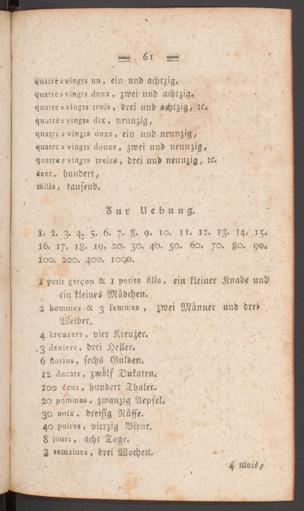 61
quatre-vingts un, ein und achtzig.
quatre-vingts deux, zwei und achtzig.
quatre-vingts trois, drei und achtzig, ꝛc.
quatre-vingts dix, neunzig,
quatre-vingts onze, ein und neunzig,
quatre-vingts douze, zwei und neunzig,
quatre-vingts treize, drei und neunzig, ꝛc.
cent, hundert,
mille, tausend.
Zur Uebung.
1. 2. 3. 4. 5. 6. 7. 8. 9. 10. 11. 12. 13. 14. 15.
16. 17. 18. 19. 20. 30. 40. 50. 60. 70. 80. 90.
100. 200. 400. 1000.
1 petit garçon & 1 petite fille, ein kleiner Knabe und
ein kleines Mädchen.
2 hommes & 3 femmes, zwei Männer und drei
Weiber.
4 kreuzers, vier Kreuzer.
3 deniers, drei Heller.
6 florins, sechs Gulden.
12 ducats, zwölf Dukaten.
100 écus, hundert Thaler.
20 pommes, zwanzig Aepfel.
30 noix, dreisig Nüsse.
40 poires, vierzig Birne.
8 jours, acht Tage.
3 semaines, drei Wochen.
4 mois,